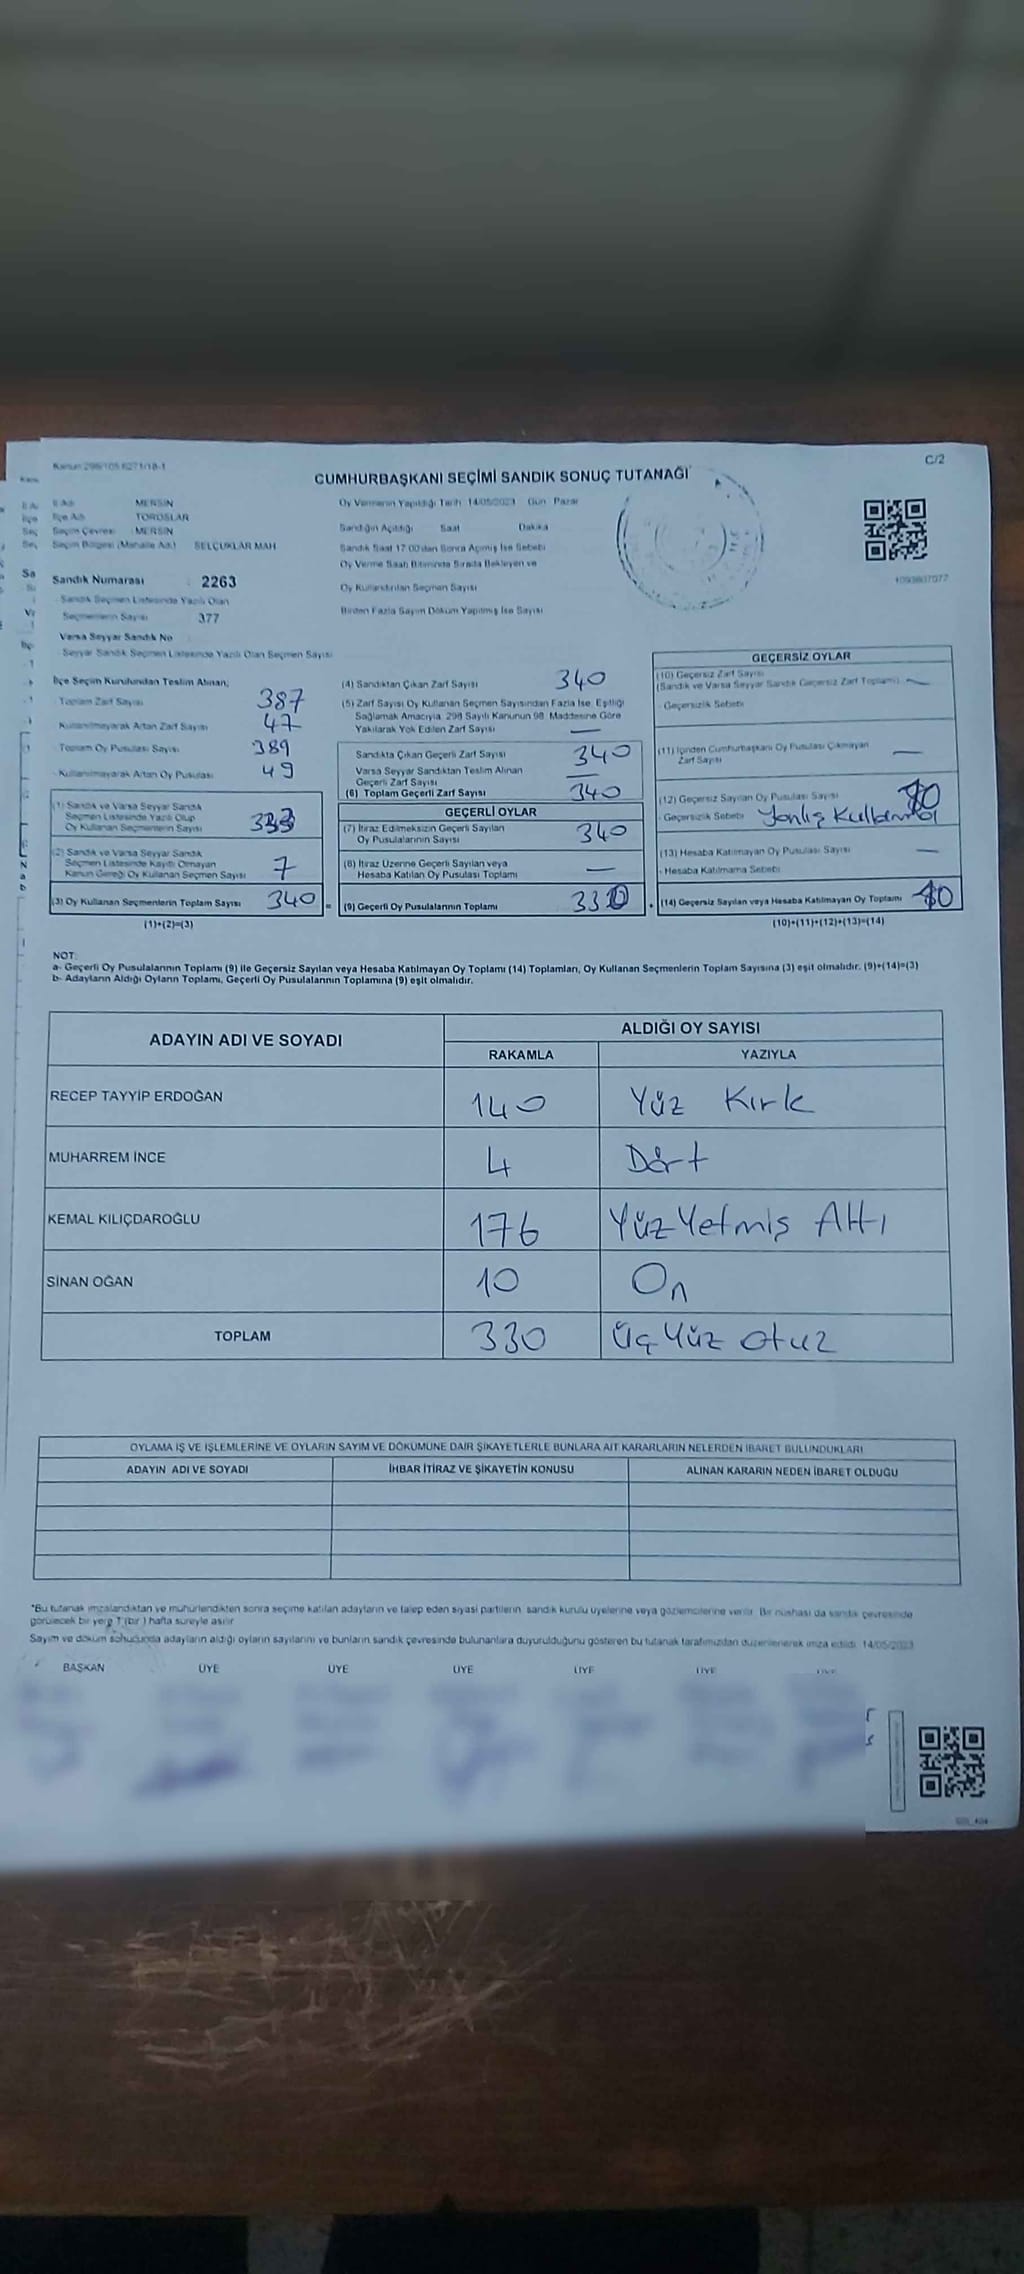 Kanun 298/105 6271/18-1
C/2
CUMHURBAŞKANI SEÇİMİ SANDIK SONUÇ TUTANAĞI
İl Adı MERSİN
İlçe Adı TOROSLAR
Seçim Çevresi MERSİN
Seçim Bölgesi (Mahalle Adı) SELÇUKLAR MAH
Sandık Numarası 2263
Sandık Seçmen Listesinde Yazılı Olan
Seçmenlerin Sayısı 377
Varsa Seyyar Sandık No
Seyyar Sandık Seçmen Listesinde Yazılı Olan Seçmen Sayısı
Oy Vermenin Yapıldığı Tarih 14/05/2023 Gün Pazar
Sandığın Açıldığı Saat Dakika
Sandık Saat 17.00'dan Sonra Açılmış İse Sebebi
Oy Verme Saati Bitiminde Sırada Bekleyen ve
Oy Kullandırılan Seçmen Sayısı
Birden Fazla Sayım Döküm Yapılmış İse Sayısı
İlçe Seçim Kurulundan Teslim Alınan;
Toplam Zarf Sayısı 387
Kullanılmayarak Artan Zarf Sayısı 47
Toplam Oy Pusulası Sayısı 389
Kullanılmayarak Artan Oy Pusulası 49
(1) Sandık ve Varsa Seyyar Sandık
Seçmen Listesinde Yazılı Olup
Oy Kullanan Seçmenlerin Sayısı 333
(2) Sandık ve Varsa Seyyar Sandık
Seçmen Listesinde Kayıtlı Olmayan
Kanun Gereği Oy Kullanan Seçmen Sayısı 7
(3) Oy Kullanan Seçmenlerin Toplam Sayısı 340
(1)+(2)=(3)
(4) Sandıktan Çıkan Zarf Sayısı 340
(5) Zarf Sayısı Oy Kullanan Seçmen Sayısından Fazla İse, Eşitliği
Sağlamak Amacıyla 298 Sayılı Kanunun 98. Maddesine Göre
Yakılarak Yok Edilen Zarf Sayısı —
Sandıkta Çıkan Geçerli Zarf Sayısı 340
Varsa Seyyar Sandıktan Teslim Alınan
Geçerli Zarf Sayısı —
(6) Toplam Geçerli Zarf Sayısı 340
GEÇERLİ OYLAR
(7) İtiraz Edilmeksizin Geçerli Sayılan
Oy Pusulalarının Sayısı 340
(8) İtiraz Üzerine Geçerli Sayılan veya
Hesaba Katılan Oy Pusulası Toplamı —
(9) Geçerli Oy Pusulalarının Toplamı 330
GEÇERSİZ OYLAR
(10) Geçersiz Zarf Sayısı
(Sandık ve Varsa Seyyar Sandık Geçersiz Zarf Toplamı) —
- Geçersizlik Sebebi
(11) İçinden Cumhurbaşkanı Oy Pusulası Çıkmayan
Zarf Sayısı —
(12) Geçersiz Sayılan Oy Pusulası Sayısı 10
- Geçersizlik Sebebi Yanlış Kullanma
(13) Hesaba Katılmayan Oy Pusulası Sayısı —
- Hesaba Katılmama Sebebi
(14) Geçersiz Sayılan veya Hesaba Katılmayan Oy Toplamı 10
(10)+(11)+(12)+(13)=(14)
NOT:
a- Geçerli Oy Pusulalarının Toplamı (9) ile Geçersiz Sayılan veya Hesaba Katılmayan Oy Toplamı (14) Toplamları, Oy Kullanan Seçmenlerin Toplam Sayısına (3) eşit olmalıdır. (9)+(14)=(3)
b- Adayların Aldığı Oyların Toplamı, Geçerli Oy Pusulalarının Toplamına (9) eşit olmalıdır.
ADAYIN ADI VE SOYADI ALDIĞI OY SAYISI
RAKAMLA YAZIYLA
RECEP TAYYİP ERDOĞAN 140 Yüz Kırk
MUHARREM İNCE 4 Dört
KEMAL KILIÇDAROĞLU 176 Yüz Yetmiş Altı
SİNAN OĞAN 10 On
TOPLAM 330 Üç Yüz Otuz
OYLAMA İŞ VE İŞLEMLERİNE VE OYLARIN SAYIM VE DÖKÜMÜNE DAİR ŞİKAYETLERLE BUNLARA AİT KARARLARIN NELERDEN İBARET BULUNDUKLARI
ADAYIN ADI VE SOYADI İHBAR İTİRAZ VE ŞİKAYETİN KONUSU ALINAN KARARIN NEDEN İBARET OLDUĞU
*Bu tutanak imzalandıktan ve mühürlendikten sonra seçime katılan adayların ve talep eden siyasi partilerin sandık kurulu üyelerine veya gözlemcilerine verilir. Bir nüshası da sandık çevresinde
görülecek bir yere 1 (bir) hafta süreyle asılır
Sayım ve döküm sonucunda adayların aldığı oyların sayılarını ve bunların sandık çevresinde bulunanlara duyurulduğunu gösteren bu tutanak tarafımızdan düzenlenerek imza edildi. 14/05/2023
BAŞKAN ÜYE ÜYE ÜYE ÜYE ÜYE ÜYE